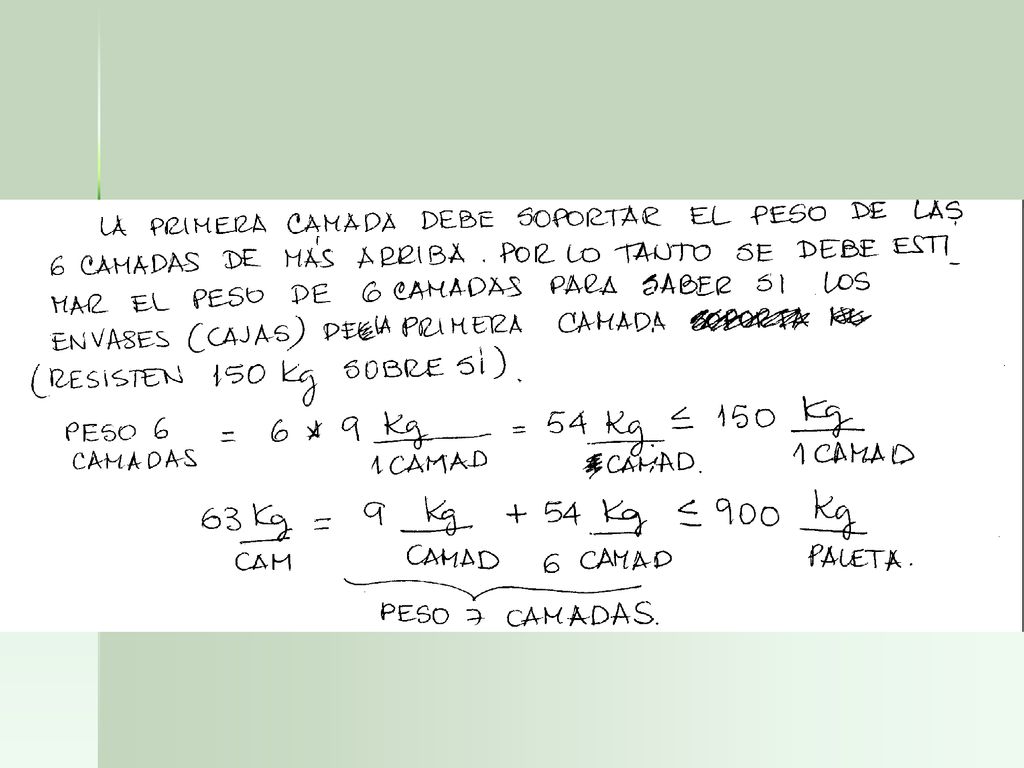 LA PRIMERA CAMADA DEBE SOPORTAR EL PESO DE LAS
6 CAMADAS DE MÁS ARRIBA. POR LO TANTO SE DEBE ESTI_
MAR EL PESO DE 6 CAMADAS PARA SABER SI LOS
ENVASES (CAJAS) DE LA PRIMERA CAMADA
(RESISTEN 150 Kg SOBRE SÍ).
PESO 6 CAMADAS = 6 * 9 Kg/1 CAMAD = 54 Kg/CAMAD. ≤ 150 Kg/1 CAMAD
63 Kg/CAM = 9 Kg/CAMAD + 54 Kg/6 CAMAD ≤ 900 Kg/PALETA.
PESO 7 CAMADAS.